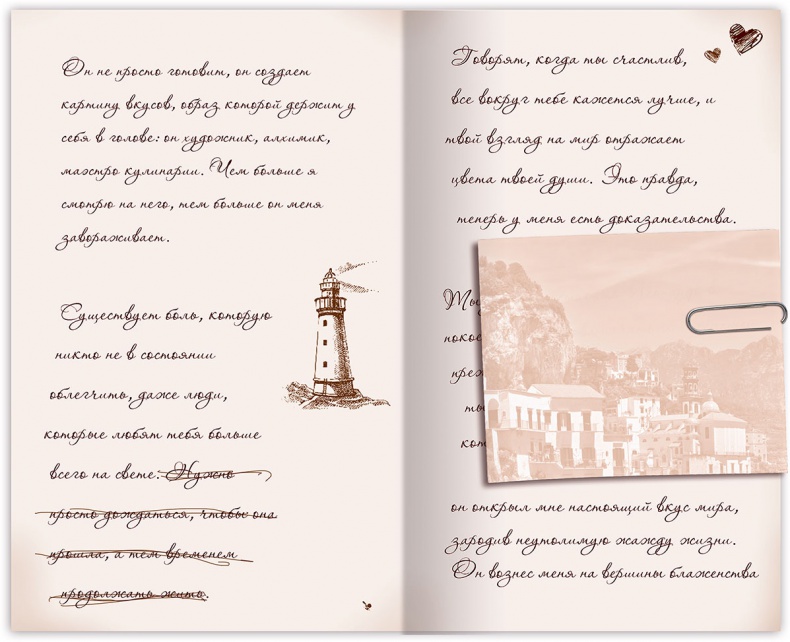 Он не просто готовит, он создает
картину вкусов, образ которой держит у
себя в голове: он художник, алхимик,
маэстро кулинарии. Чем больше я
смотрю на него, тем больше он меня
завораживает.
Существует боль, которую
никто не в состоянии
облегчить, даже люди,
которые любят тебя больше
всего на свете. Нужно
просто дождаться, чтобы она
прошла, а тем временем
продолжать жить.
Говорят, когда ты счастлив,
все вокруг тебе кажется лучше, и
твой взгляд на мир отражает
цвета твоей души. Это правда,
теперь у меня есть доказательства.
он открыл мне настоящий вкус мира,
зародив неутолимую жажду жизни.
Он вознес меня на вершины блаженства